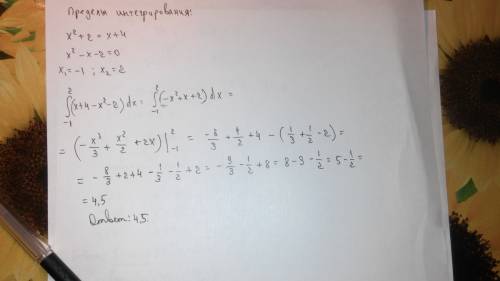 Пределы интегрирования:
x² + 2 = x + 4
x² - x - 2 = 0
x₁ = -1 ; x₂ = 2
∫₋₁² (x + 4 - x² - 2) dx = ∫₋₁² (-x² + x + 2) dx =
= (-x³/3 + x²/2 + 2x) |₋₁² = -8/3 + 4/2 + 4 - (1/3 + 1/2 - 2) =
= -8/3 + 2 + 4 - 1/3 - 1/2 + 2 = -9/3 - 1/2 + 8 = 8 - 3 - 1/2 = 5 - 1/2 =
= 4,5
Ответ: 4,5.